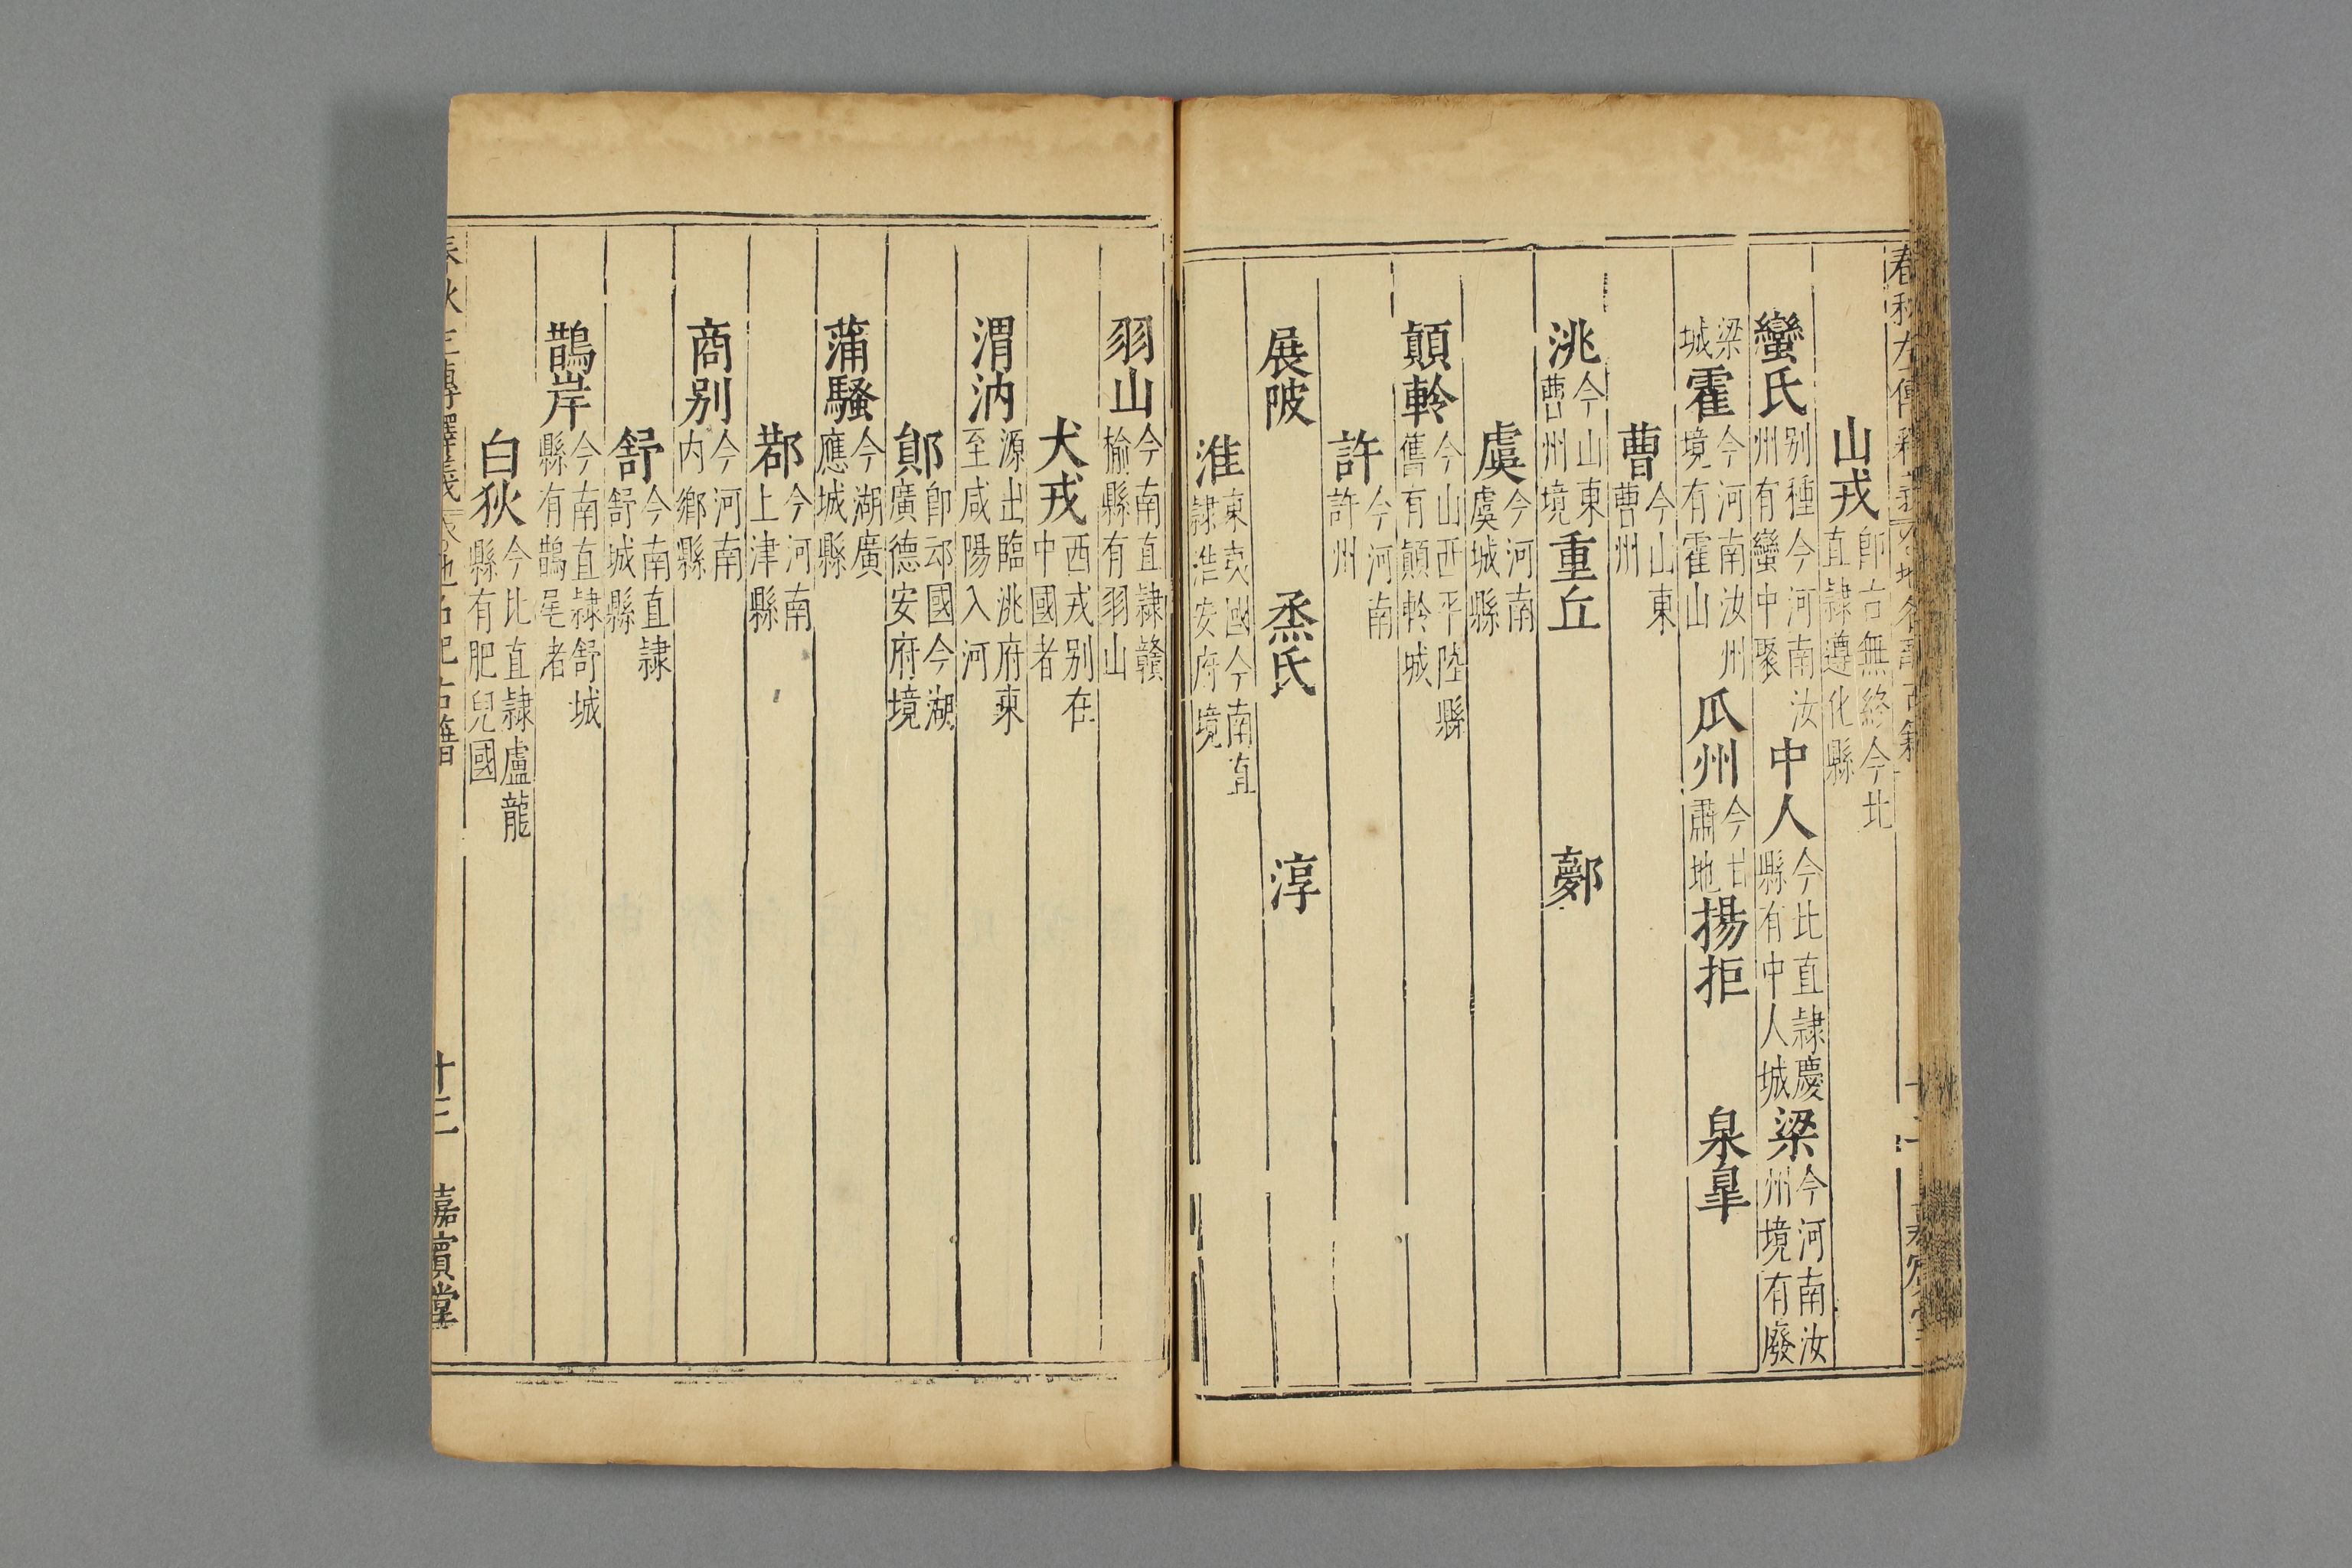 山戎即古無終今北直隸遵化縣
蠻氏別種今河南汝州有蠻中聚中人今北直隸慶縣有中人城梁今河南汝州境有廢
梁城霍今河南汝州境有霍山瓜州今甘肅地揚拒 泉皐
曹今山東曹州
洮今山東曹州境重丘 鄸
虞今河南虞城縣
顛軨今山西平陸縣舊有顛軨城
許今河南許州
展陂 烝氏 淳
淮東夷國今南直隸淮安府境
羽山今南直隸贛榆縣有羽山
犬戎西戎別在中國者
渭汭源出臨洮府東至咸陽入河
鄖即邧國今湖廣德安府境
蒲騷今湖廣應城縣
鄀今河南上津縣
商別今河南內鄉縣
舒今南直隸舒城縣
鵲岸今南直隸舒城縣有鵲尾者
白狄今北直隸盧龍縣有肥兒國
十三 嘉賓堂